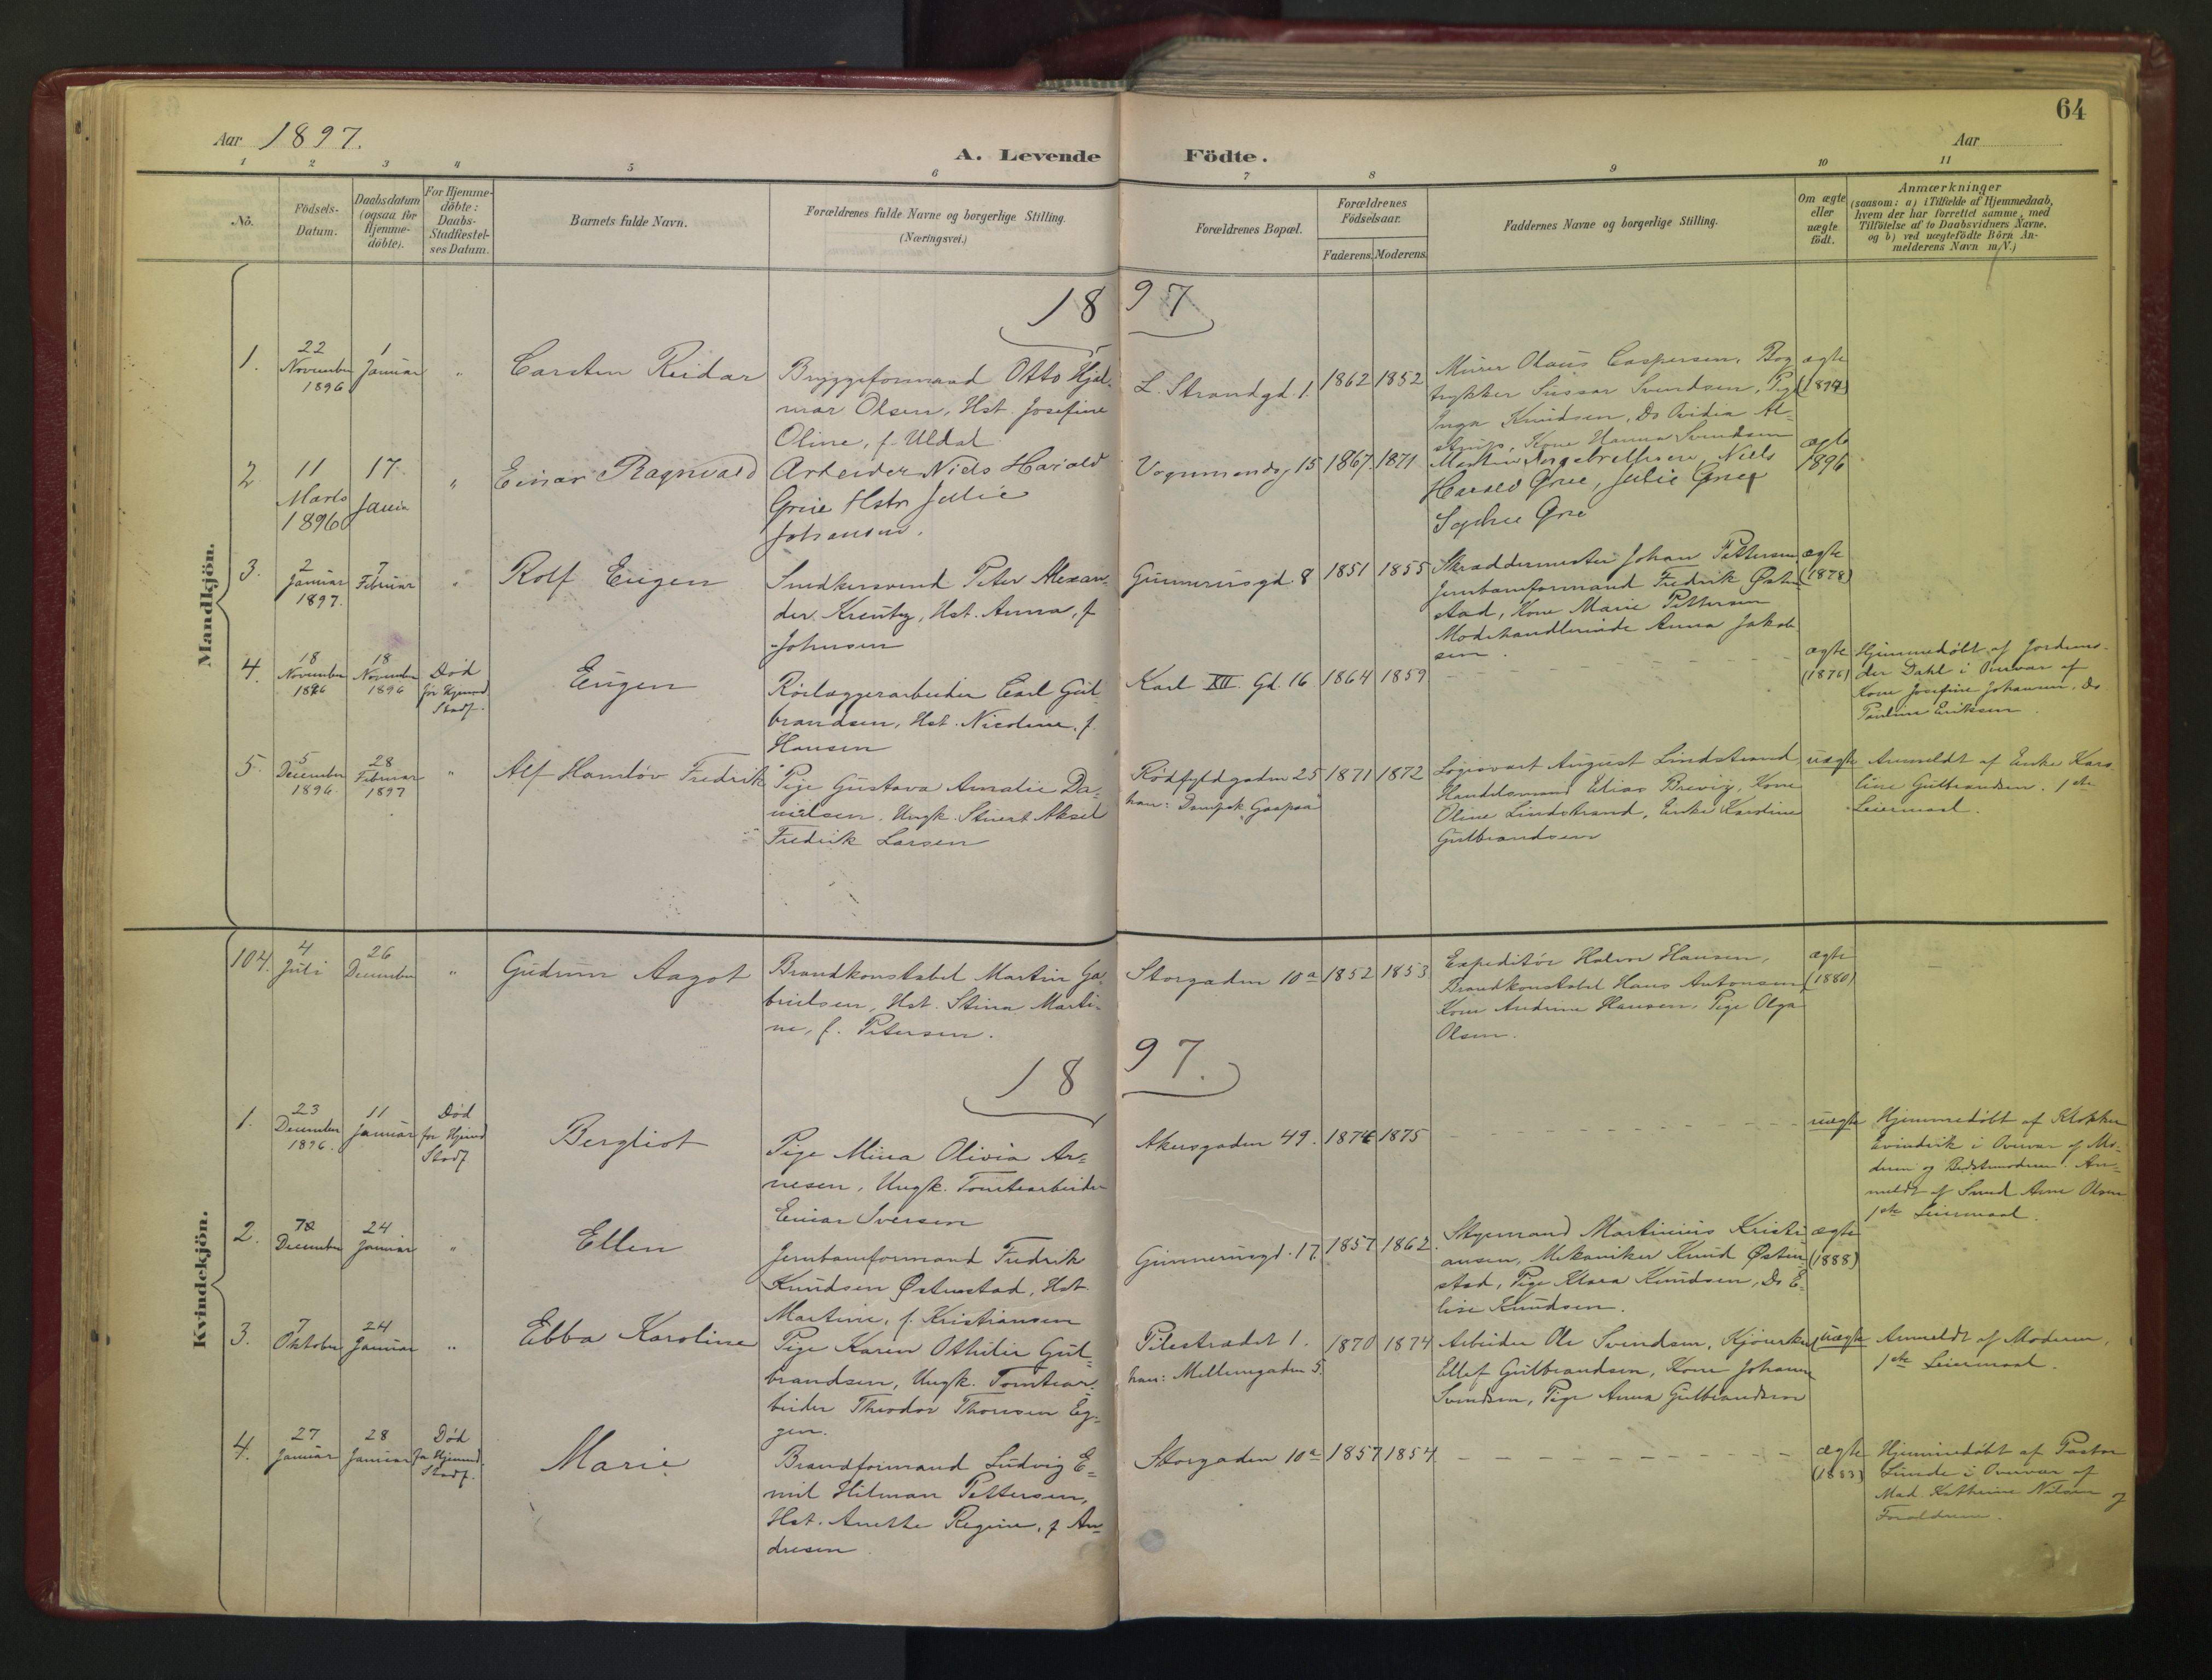 64
Aar 1897.
Aar
A. Levende Födte.
1 2 3 4 5 6 7 8 9 10 11
No.
Födsels-
Datum.
Daabsdatum
(ogsaa for
Hjemme-
döbte).
For Hjemme-
döbte:
Daabs-
Stadfæstel-
ses Datum.
Barnets fulde Navn.
Forældrenes fulde Navne og borgerlige Stilling.
(Næringsvei.)
Forældrenes Bopæl.
Forældrenes
Födselsaar.
Faderens. Moderens.
Faddernes Navne og borgerlige Stilling.
Om ægte
eller
uægte
födt.
Anmærkninger
(saasom: a) i Tilfælde af Hjemmedaab,
hvem der har forrettet samme, med
Tilföielse af to Daabsvidners Navne,
og b) ved uægtefödte Börn An-
melderens Navn m/V.)
Mandkjön.
1897
1.
22
November
1896
1
Januar
"
Carsten Reidar
Bryggeformand Otto Hjal-
mar Olsen, Hst. Josefine
Oline, f. Uldal
L. Strandgd. 1.
1862
1852
Murer Olaus Caspersen, Bog
trykker Svendsen, Pige
Inga Knudsen, Do Ovidia Al-
Kone Hanna Svendsen
ægte
2.
11
Marts
1896
17
Janu
"
Einar Ragnvald
Arbeider Niels Harald
Grue Hstr Julie
Johansen.
Vognmandsg 15
1867
1871
Martin Niels
Harald Grue, Julie Grue
Sophie Grue
ægte
1896
3.
2
Januar
1897.
7
Februar
"
Rolf Eugen
Snedkersvend Peter Alexan-
der Kreutz, Hst. Anna, f
Johnsen
Gunnerusgd. 8
1851
1855
Skræddermester Johan Pettersen
Jernbaneformand Fredrik Østen-
stad, Kone Marie Pettersen
Modehandlerinde Anna Jakob-
sen.
ægte
(1878)
4.
18
November
1896
18
November
1896
Død
før Hjemmed.
Stadf.
Eugen
Rørlæggerarbeider Carl Gul-
brandsen, Hst. Nicoline, f.
Hansen
Karl XII. Gd. 16
1864
1859
ægte
(1876)
Hjemmedøbt af Jordemo-
der Dahl i Overvær af
Kone Josefine Johansen, Do
Pauline Eriksen.
5.
5
December
1896
28
Februar
1897
"
Alf Hamlov Fredrik
Pige Gustava Amalie Da-
nielsen. Ungk. Stuert Aksel
Fredrik Larsen
Rødfyldgaden 25
han: Dampsk. Gaapaa
1871
1872
Logisvært August Lindstrand,
Handelsmand Elias Brevig, Kone
Oline Lindstrand, Enke Karoline
Gulbrandsen
uægte
Anmeldt af Enke Karo-
line Gulbrandsen. 1ste
Leiermaal.
Kvindekjön.
104.
4
Juli
26
December
"
Gudrun Aagot
Brandkonstabel Martin Ga-
brielsen, Hst. Stina Marti-
ne, f. Petersen.
Storgaden 10a
1852
1853
Expeditör Halvor Hansen,
Brandkonstabel Hans Antonsen
Kone Andrine Hansen, Pige Olga
Olsen.
ægte
(1880)
1897.
1.
23
December
1896.
11
Januar
Død
før Hjemmed
Stadf
Bergliot
Pige Mina Olivia Ar-
nesen, Ungk. Tomtearbeider
Einar Iversen
Akersgaden 49.
1874
1875
uægte
Hjemmedøbt af Klokker
i Overvær af Mo-
deren og Bedstemoderen. An-
meldt af Smed Arne Olsen
1ste Leiermaal.
2.
December
24
Januar
"
Ellen
Jernbaneformand Fredrik
Knudsen Østenstad, Hst.
Martine, f. Kristiansen
Gunnerusgd. 17
1857
1862.
Styrmand Martinius Kristi-
ansen, Mekaniker Knud Østen-
stad, Pige Klara Knudsen, Do E-
lise Knudsen.
ægte
(1888)
3.
7
Oktober
24
Januar
"
Ebba Karoline
Pige Karen Othilie Gul-
brandsen, Ungk. Tomtear-
beider Theodor Thoresen Eg-
gen.
Pilestrædet 1.
han: Mellemgaden 5.
1870
1874
Arbeider Ole Svendsen, Kjøusker
Ellef Gulbrandsen, Kone Johanne
Svendsen, Pige Anna Gulbrandsen
uægte
Anmeldt af Moderen,
1ste Leiermaal.
4.
27
Januar
28
Januar
Død
før Hjemmed.
Stadf.
Marie
Brandformand Ludvig E-
mil Hilman Pettersen,
Hst. Anette Regine, f An-
dresen.
Storgaden 10a
1857
1854
ægte
(1883)
Hjemmedøbt af Pastor
Lunde i Overvær af
Mad. Kathrine Nilsen og
Forældrene.